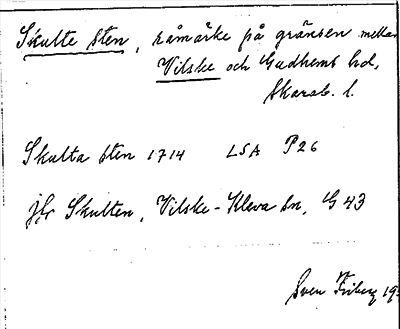 Skulte sten, råmärke på gränsen mellan
Vilske och Gudhems hd,
Skarab. l.
Skulta sten 1714 LSA P26
jfr Skulten, Vilske-Kleva sn, G 43
Sven Friberg 19